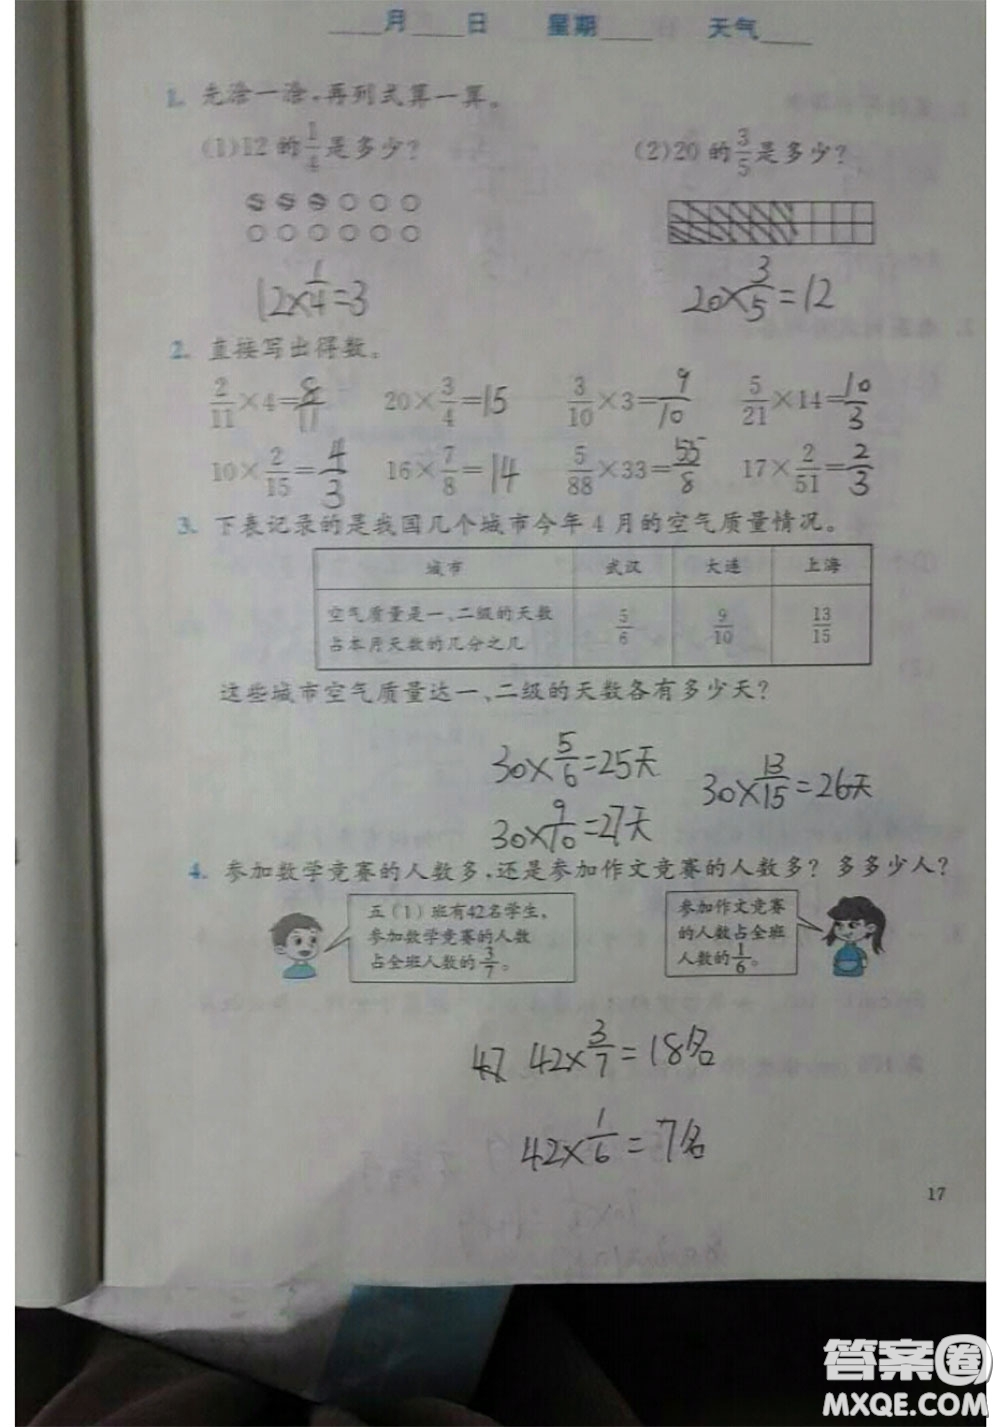 ____月____日 星期____ 天气____
1. 先涂一涂,再列式算一算。
(1)12的1/4是多少? (2)20的3/5是多少?
12×1/4=3 20×3/5=12
2. 直接写出得数。
2/11×4=8/11 20×3/4=15 3/10×3=9/10 5/21×14=10/3
10×2/15=4/3 16×7/8=14 5/88×33=55/8 17×2/51=2/3
3. 下表记录的是我国几个城市今年4月的空气质量情况。
城市 武汉 大连 上海
空气质量是一、二级的天数
占本月天数的几分之几 5/6 9/10 13/15
这些城市空气质量达一、二级的天数各有多少天?
30×5/6=25天 30×13/15=26天
30×9/10=27天
4. 参加数学竞赛的人数多,还是参加作文竞赛的人数多?多多少人?
五(1)班有42名学生,
参加数学竞赛的人数
占全班人数的3/7。
参加作文竞赛
的人数占全班
人数的1/6。
42×3/7=18名
42×1/6=7名
17
答案圈
MXQE.COM